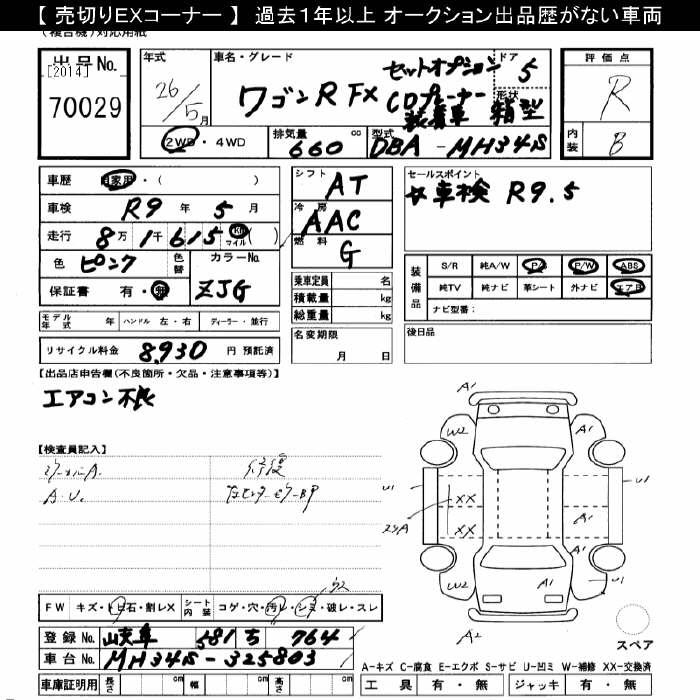 【 売切りEXコーナー 】 過去１年以上 オークション出品歴がない車両
(複合機)対応用紙
出品No.
[2014]
70029
年式
26/5月
車名・グレード
ワゴンR FX
セットオプション
CDプレーナー
装着車
ドア
5
形状
箱型
評価点
R
内装
B
2WD・4WD
排気量
660
cc
型式
DBA-MH34S
車歴
自家用・( )
車検
R9年5月
走行
8万1千615
km
マイル
( )
色
ピンク
色替
カラーNo.
ZJG
保証書
有・無
シフト
AT
冷房
AAC
燃料
G
セールスポイント
☆車検 R9.5
装備品
S/R 純A/W P/S P/W ABS
純TV 純ナビ 革シート 外ナビ エアB
ナビ型番:
乗車定員 名
積載量 kg
総重量 kg
モデル年式 年
ハンドル 左・右
ディーラー・並行
リサイクル料金 8,930 円 預託済
名変期限
月 日
後日品
【出品店申告欄(不良箇所・欠品・注意事項等)】
エアコン不良
【検査員記入】
A.U.
A1
W2
A1
U1
XX
U1
25A
XX
A1
W2
A1
A1
U1
A2
スペア
FW
キズ・トビ石・割レX
シート内装
コゲ・穴・汚レ・シミ・破レ・スレ
登録No. 581 ち 764
車台No. MH34S-325803
車庫証明用 長さ cm 幅 cm 高さ cm
A-キズ C-腐食 E-エクボ S-サビ U-凹ミ W-補修 XX-交換済
工具 有・無 ジャッキ 有・無